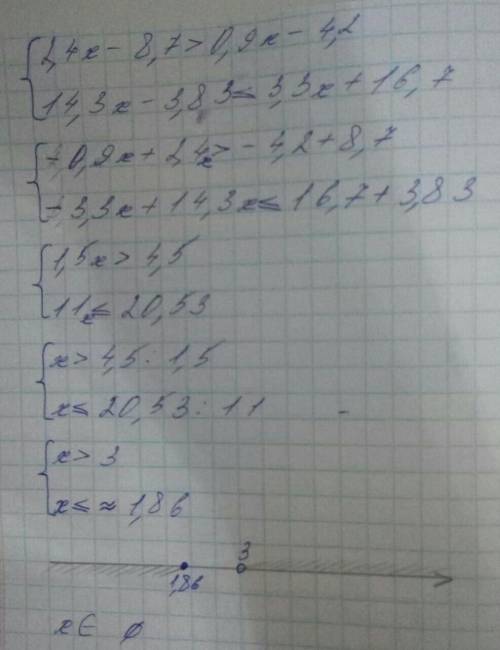 2,4x - 8,7 > 0,9x - 4,2
14,3x - 3,83 ≤ 3,3x + 16,7
-0,9x + 2,4x > -4,2 + 8,7
-3,3x + 14,3x ≤ 16,7 + 3,83
1,5x > 4,5
11x ≤ 20,53
x > 4,5 : 1,5
x ≤ 20,53 : 11
x > 3
x ≤ ≈ 1,86
3
1,86
x ∈ ∅